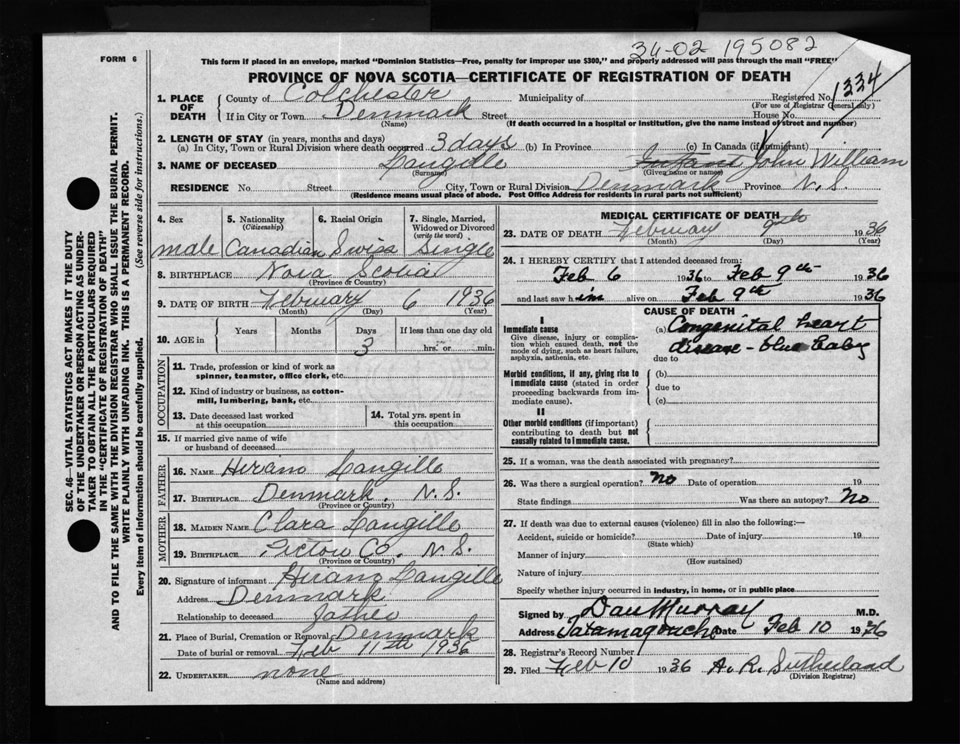 34-02 195082
FORM 6
This form if placed in an envelope, marked "Dominion Statistics—Free, penalty for improper use $300," and properly addressed will pass through the mail "FREE"
PROVINCE OF NOVA SCOTIA—CERTIFICATE OF REGISTRATION OF DEATH
1334
SEC. 46—VITAL STATISTICS ACT MAKES IT THE DUTY
OF THE UNDERTAKER OR PERSON ACTING AS UNDER-
TAKER TO OBTAIN ALL THE PARTICULARS REQUIRED
IN THE "CERTIFICATE OF REGISTRATION OF DEATH"
AND TO FILE THE SAME WITH THE DIVISION REGISTRAR WHO SHALL ISSUE THE BURIAL PERMIT.
WRITE PLAINLY WITH UNFADING INK. THIS IS A PERMANENT RECORD.
Every item of information should be carefully supplied. (See reverse side for instructions.)
1. PLACE OF DEATH
County of Colchester Municipality of Registered No.
(For use of Registrar General only)
If in City or Town Denmark Street House No.
(Name) (If death occurred in a hospital or institution, give the name instead of street and number)
2. LENGTH OF STAY (in years, months and days)
(a) In City, Town or Rural Division where death occurred 3 days (b) In Province (c) In Canada (if immigrant)
3. NAME OF DECEASED Langille Infant John William
(Surname) (Given name or names)
RESIDENCE No Street City, Town or Rural Division Denmark Province N.S.
(Residence means usual place of abode. Post Office Address for residents in rural parts not sufficient)
4. Sex
male
5. Nationality
(Citizenship)
Canadian
6. Racial Origin
Swiss
7. Single, Married,
Widowed or Divorced
(write the word)
Single
8. BIRTHPLACE Nova Scotia
(Province or Country)
9. DATE OF BIRTH February 6 1936
(Month) (Day) (Year)
10. AGE in
Years Months Days If less than one day old
3 hrs. or min.
OCCUPATION
11. Trade, profession or kind of work as
spinner, teamster, office clerk, etc.
12. Kind of industry or business, as cotton-
mill, lumbering, bank, etc.
13. Date deceased last worked
at this occupation
14. Total yrs. spent in
this occupation
15. If married give name of wife
or husband of deceased
FATHER
16. NAME Hiram Langille
17. BIRTHPLACE Denmark. N.S.
(Province or Country)
MOTHER
18. MAIDEN NAME Clara Langille
19. BIRTHPLACE Pictou Co. N.S.
(Province or Country)
20. Signature of informant Hiram Langille
Address Denmark
Relationship to deceased father
21. Place of Burial, Cremation or Removal Denmark
Date of burial or removal Feb 11th 1936
22. UNDERTAKER none
(Name and address)
MEDICAL CERTIFICATE OF DEATH
23. DATE OF DEATH February 9th 1936
(Month) (Day) (Year)
24. I HEREBY CERTIFY that I attended deceased from:
Feb 6 1936 to Feb 9th 1936
and last saw him alive on Feb 9th 1936
CAUSE OF DEATH
I
Immediate cause
Give disease, injury or complica-
tion which caused death, not the
mode of dying, such as heart failure,
asphyxia, asthenia, etc.
(a) Congenital heart
disease - blue baby
due to
Morbid conditions, if any, giving rise to
immediate cause (stated in order
proceeding backwards from im-
mediate cause).
(b)
due to
(c)
II
Other morbid conditions (if important)
contributing to death but not
causally related to immediate cause.
25. If a woman, was the death associated with pregnancy?
26. Was there a surgical operation? No Date of operation 19
State findings Was there an autopsy? No
27. If death was due to external causes (violence) fill in also the following:—
Accident, suicide or homicide? Date of injury 19
(State which)
Manner of injury
(How sustained)
Nature of injury
Specify whether injury occurred in industry, in home, or in public place
Signed by Dan Murray M.D.
Address Tatamagouche Date Feb 10 1936
28. Registrar's Record Number
29. Filed Feb 10 1936 A. R. Sutherland
(Division Registrar)